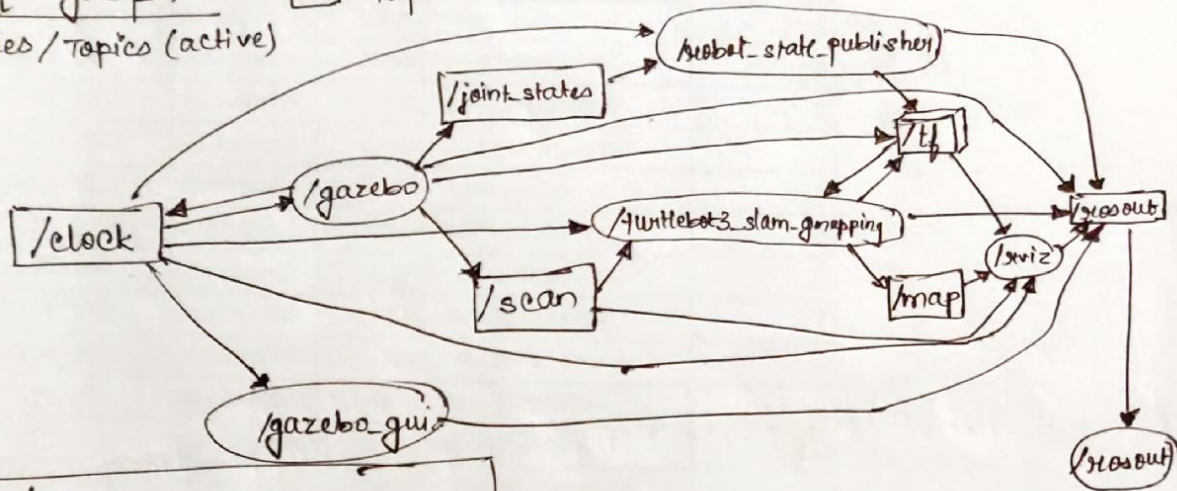 es/Topics (active)
/robot_state_publisher
/joint_states
/tf
/gazebo
/rosout
/clock
/turtlebot3_slam_gmapping
/rviz
/scan
/map
/gazebo_gui
/rosout